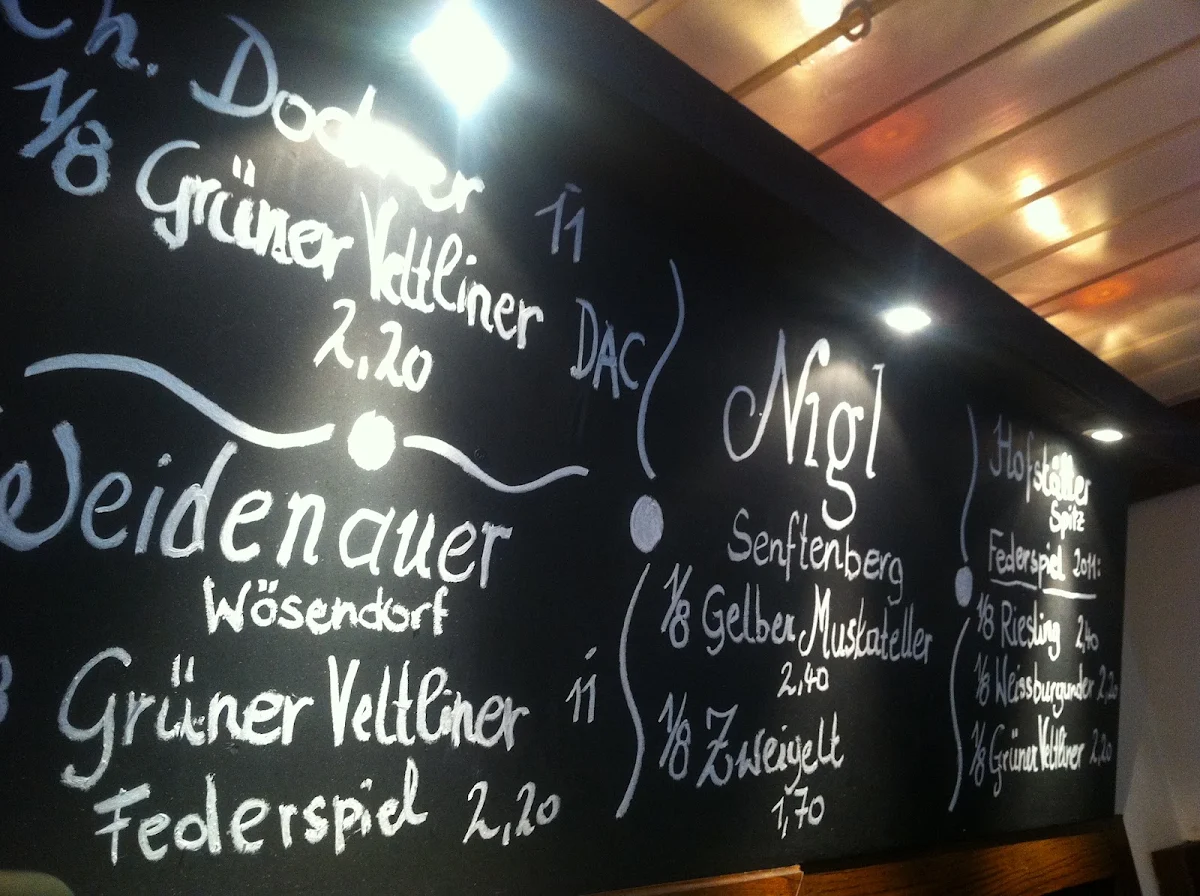 Ch. Docker
1/8 Grüner Veltliner 11
DAC
2,20
Weidenauer
Wösendorf
Grüner Veltliner 11
Federspiel 2,20
Nigl
Senftenberg
1/8 Gelber Muskateller
2,40
1/8 Zweigelt
1,70
Hofstätter
Spitz
Federspiel 2011:
1/8 Riesling 2,40
1/8 Weissburgunder 2,20
1/8 Grüner Veltliner 2,20